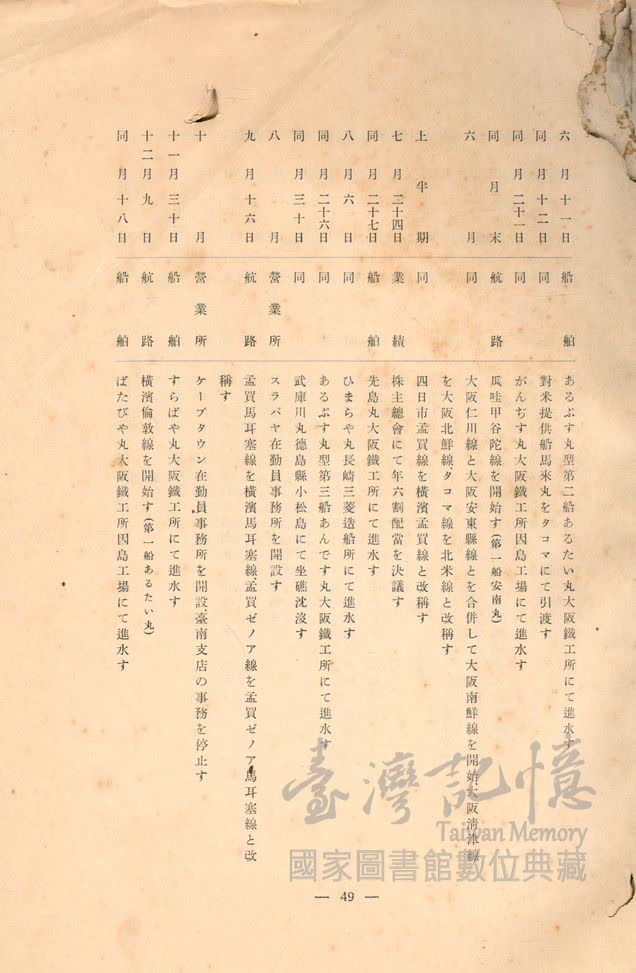 六月十一日 船舶 あるぷす丸型第二船あるたい丸大阪鐵工所にて進水す
同月十二日 同 對米提供船馬來丸をタコマにて引渡す
同月二十一日 同 がんぢす丸大阪鐵工所因島工場にて進水す
同月末 航路 瓜哇甲谷陀線を開始す(第一船安南丸)
六月 同 大阪仁川線と大阪安東縣線とを合併して大阪南鮮線を開始大阪淸津線
を大阪北鮮線タコマ線を北米線と改稱す
上半期 同 四日市孟買線を橫濱孟買線と改稱す
七月二十四日 業績 株主總會にて年六割配當を決議す
同月二十七日 船舶 先島丸大阪鐵工所にて進水す
八月六日 同 ひまらや丸長崎三菱造船所にて進水す
同月二十六日 同 あるぷす丸型第三船あんです丸大阪鐵工所にて進水す
同月三十日 同 武庫川丸德島縣小松島にて坐礁沈沒す
八月 營業所 スラバヤ在勤員事務所を開設す
九月十六日 航路 孟買馬耳塞線を橫濱馬耳塞線孟買ゼノア線を孟買ゼノア馬耳塞線と改
稱す
十月 營業所 ケープタウン在勤員事務所を開設臺南支店の事務を停止す
十一月三十日 船舶 すらばや丸大阪鐵工所にて進水す
十二月九日 航路 橫濱倫敦線を開始す(第一船あるたい丸)
同月十八日 船舶 ばたびや丸大阪鐵工所因島工場にて進水す
— 49 —
臺灣記憶
Taiwan Memory
國家圖書館數位典藏